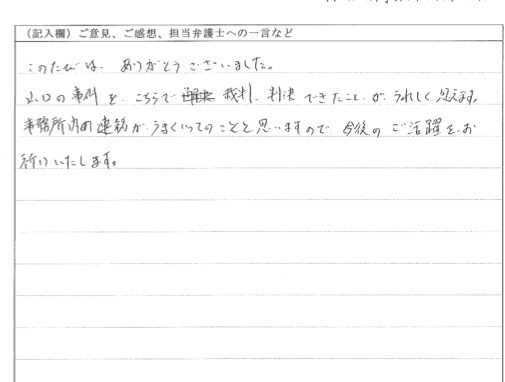 (記入欄)ご意見、ご感想、担当弁護士への一言など
このたびは、ありがとうございました。
山口の事件を、こちらで 裁判、判決できたことが、うれしく思えます。
事務所内の連絡がうまくいってのことと思いますので 今後のご活躍をお
祈りいたします。